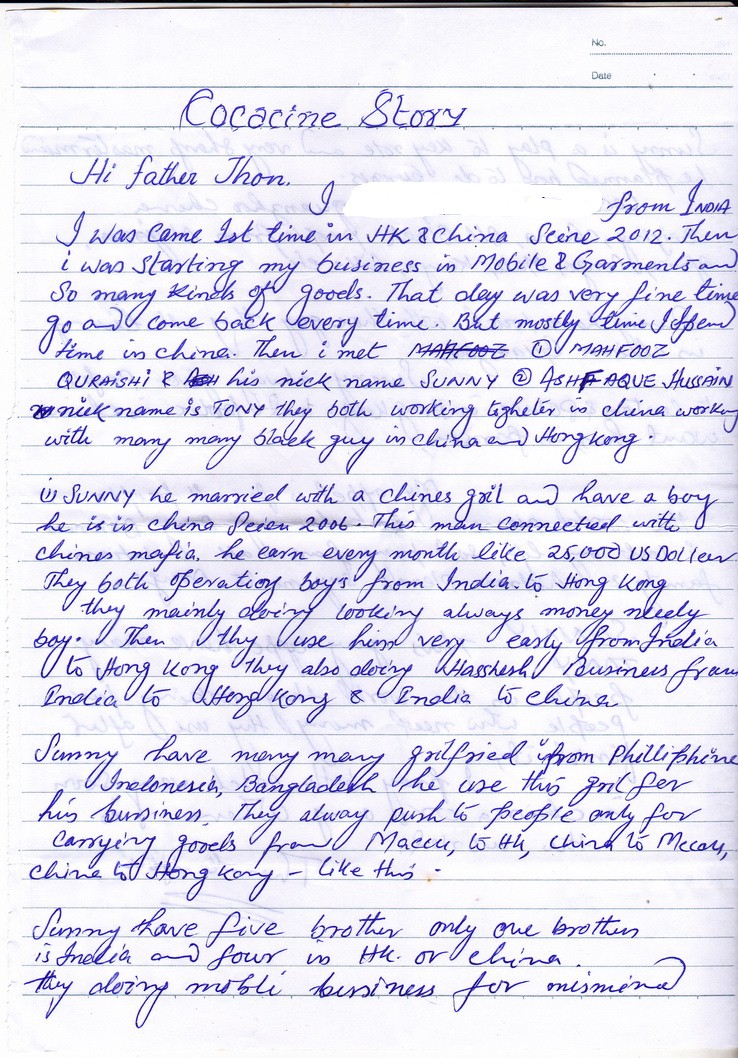 No.
Date
Cocacine Story
Hi father Jhon.
I from INDIA
I was came 1st time in HK & China Seine 2012. Then
i was starting my business in Mobile & Garments and
So many kinds of goods. That day was very fine time
go and come back every time. But mostly time I spend
time in china. Then i met MAHFOOZ ① MAHFOOZ
QURAISHI & his nick name SUNNY ② ASHFAQUE HUSSAIN
nick name is TONY they both working togheter in china working
with many many black guy in china and Hongkong.
(1) SUNNY he married with a chines gril and have a boy
he is in china Seien 2006. This man connected with
chines mafia. he earn every month like 25,000 US Dolleer
They both operating boys from India to Hong Kong
they mainly doing looking always money needy
boy. Then thy use him very early from India
to Hong Kong They also doing Hasshesh Business from
India to Hong Kong & India to China
Sunny have many many grilfried from Philliphine
Indonesia, Bangladesh he use this gril for
his bussiness. They alway push to people only for
carrying goods from Maccu, to HK, China to Mccau,
china to Hong Kong - like this.
Sunny have five brother only one brother
is India and four in HK or china.
they doing mobli bussiness for